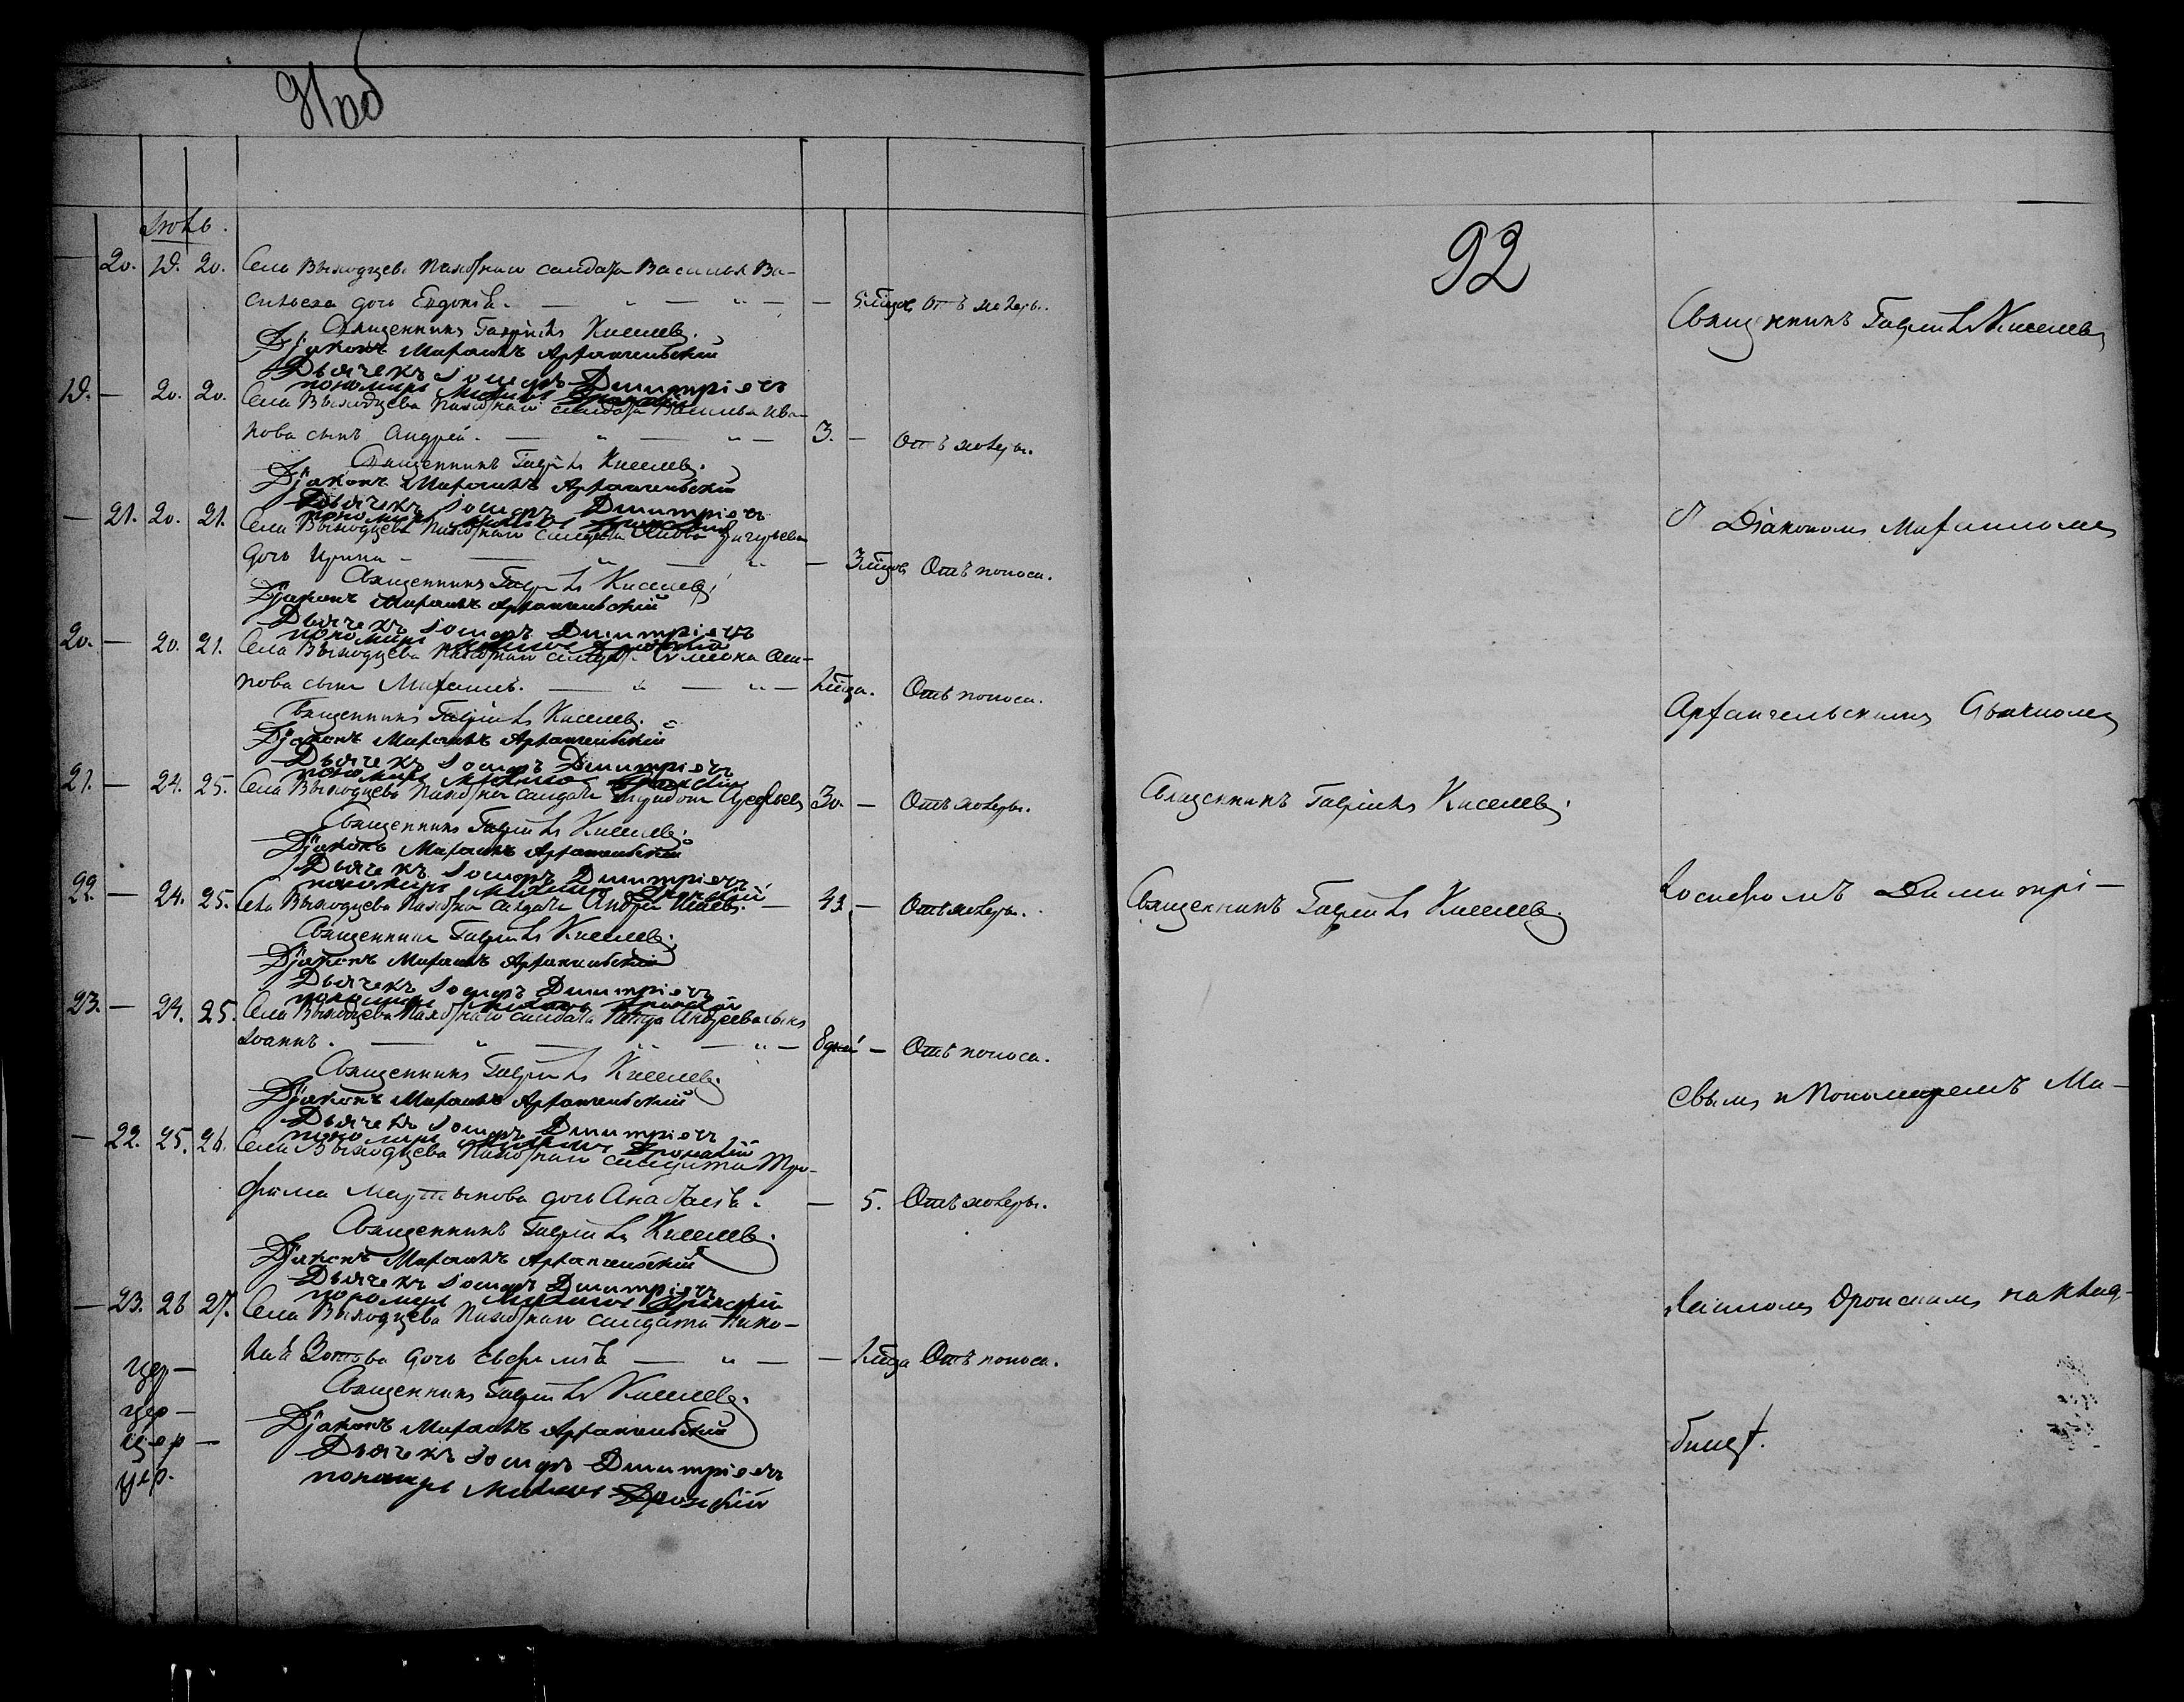 91об
Іюль.
20. 19. 20. Села Выходцева Пахотнаго солдата Василья Ва-
сильева дочь Евдокія. 5 Месяц. Отъ холеры.
Священникъ Гавріилъ Киселевъ.
Діаконъ Михаилъ Архангельскій
Дьячекъ Іосифъ Димитріевъ
пономарь Михаилъ Дронскій
19. 20. 20. Села Выходцева Пахотнаго солдата Василья Ива-
нова сынъ Андрей. 3. Отъ холеры.
Священникъ Гавріилъ Киселевъ.
Діаконъ Михаилъ Архангельскій
Дьячекъ Іосифъ Димитріевъ
пономарь Михаилъ Дронскій
21. 20. 21. Села Выходцева Пахотнаго солдата Григорьева
дочь Ирина 3 Отъ поноса.
Священникъ Гавріилъ Киселевъ
Діаконъ Михаилъ Архангельскій
Дьячекъ Іосифъ Димитріевъ
пономарь Михаилъ Дронскій
20. 20. 21. Села Выходцева Пахотнаго солдат. Оси-
пова сынъ Михаилъ. Отъ поноса.
Священникъ Гавріилъ Киселевъ.
Діаконъ Михаилъ Архангельскій
Дьячекъ Іосифъ Димитріевъ
пономарь Михаилъ Дронскій
21. 24. 25. Села Выходцева Пахотный солдатъ 30. Отъ холеры.
Священникъ Гавріилъ Киселевъ.
Діаконъ Михаилъ Архангельскій
Дьячекъ Іосифъ Димитріевъ
пономарь Михаилъ Дронскій
22. 24. 25. Села Выходцева Пахотный солдатъ Андрей 43. Отъ холеры.
Священникъ Гавріилъ Киселевъ.
Діаконъ Михаилъ Архангельскій
Дьячекъ Іосифъ Димитріевъ
пономарь Михаилъ Дронскій
23. 24. 25. Села Выходцева Пахотнаго солдата Петра Андреева сынъ
Іоаннъ. 8 дней Отъ поноса.
Священникъ Гавріилъ Киселевъ.
Діаконъ Михаилъ Архангельскій
Дьячекъ Іосифъ Димитріевъ
пономарь Михаилъ Дронскій
22. 25. 26. Села Выходцева Пахотнаго солдата Тро-
фима Мартынова дочь Анастасія. 5. Отъ холеры.
Священникъ Гавріилъ Киселевъ.
Діаконъ Михаилъ Архангельскій
Дьячекъ Іосифъ Димитріевъ
пономарь Михаилъ Дронскій
23. 26 27. Села Выходцева Пахотнаго солдата Нико-
лая Зотова дочь Евфимія Отъ поноса.
Священникъ Гавріилъ Киселевъ.
Діаконъ Михаилъ Архангельскій
Дьячекъ Іосифъ Димитріевъ
пономарь Михаилъ Дронскій
цер-
цер-
цер-
цер.
92
Священникъ Гавріилъ Киселевъ
Съ Діакономъ Михаиломъ
Архангельскимъ Дьячкомъ
Священникъ Гавріилъ Киселевъ.
Іосифомъ Димитрі-
Священникъ Гавріилъ Киселевъ.
евымъ и Пономаремъ Ми-
хаиломъ Дронскимъ на клад-
бищѣ.